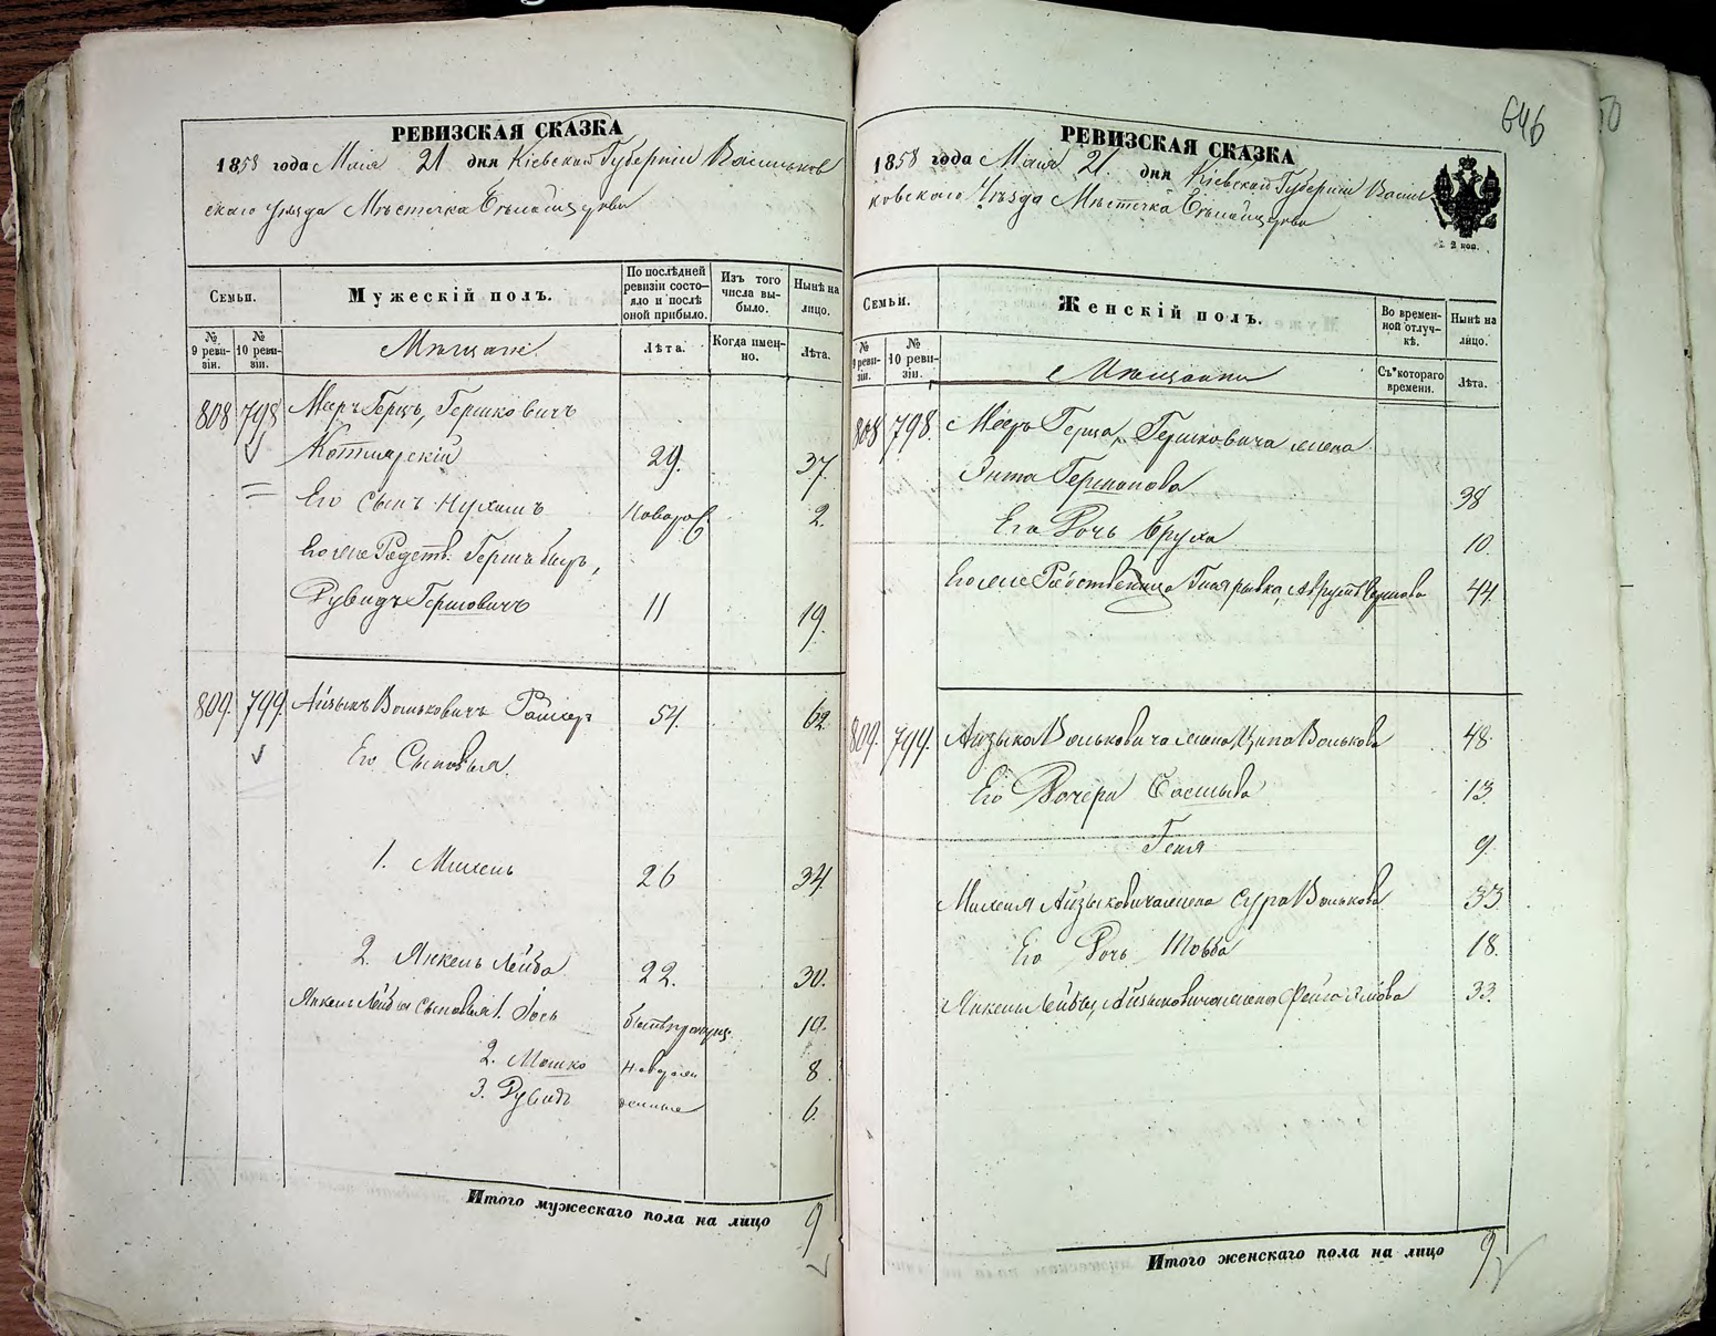 646
50
РЕВИЗСКАЯ СКАЗКА
1858 года Маія 21 дня Кіевской Губерніи Васильков
скаго Уѣзда Мѣстечка Бѣлойцеркви
Семьи.
Мужескій полъ.
По послѣдней ревизіи состояло и послѣ оной прибыло.
Изъ того числа выбыло.
Нынѣ на лицо.
№ 9 ревизіи.
№ 10 ревизіи.
Мѣщане.
Лѣта.
Когда именно.
Лѣта.
808 798 Меер Герцъ, Гершковичъ
Котлярскій 29. 37.
Его Сынъ Нухимъ Новорож 2.
Его же Родств. Гершъ Беръ,
Рувидъ Гершовичъ 11 19.
809. 799. Айзыкъ Вольковичъ 54. 62.
Его Сыновья.
1. Михель 26 34.
2. Янкель Лейба 22. 30.
Янкель Лейбы Сыновья 1. Іось бытъ пропущ. 10.
2. Мошко Новорож 8.
3. Рувидъ денные 6.
Итого мужескаго пола на лицо 9
РЕВИЗСКАЯ СКАЗКА
1858 года Маія 21. дня Кіевской Губерніи Василь
ковского Уѣзда Мѣстечка Бѣлойцеркви
2 коп.
Семьи.
Женскій полъ.
Во временной отлучкѣ.
Нынѣ на лицо.
№ 9 ревизіи.
№ 10 ревизіи.
Мѣщанки
Съ котораго времени.
Лѣта.
808 798. Меер Герца, Гершковича жена
Энта 38
Его Дочь Бруха 10.
Его же Родственница 44.
809. 799. Айзыка Вольковича жена Ципа Волькова 48
Его Дочери 13
Геня 9.
Михеля Айзыковича жена Сура Волькова 33
Его Дочь Товба 18.
Янкель Лейбы, Айзыковича жена Фейга 33.
Итого женскаго пола на лицо 9